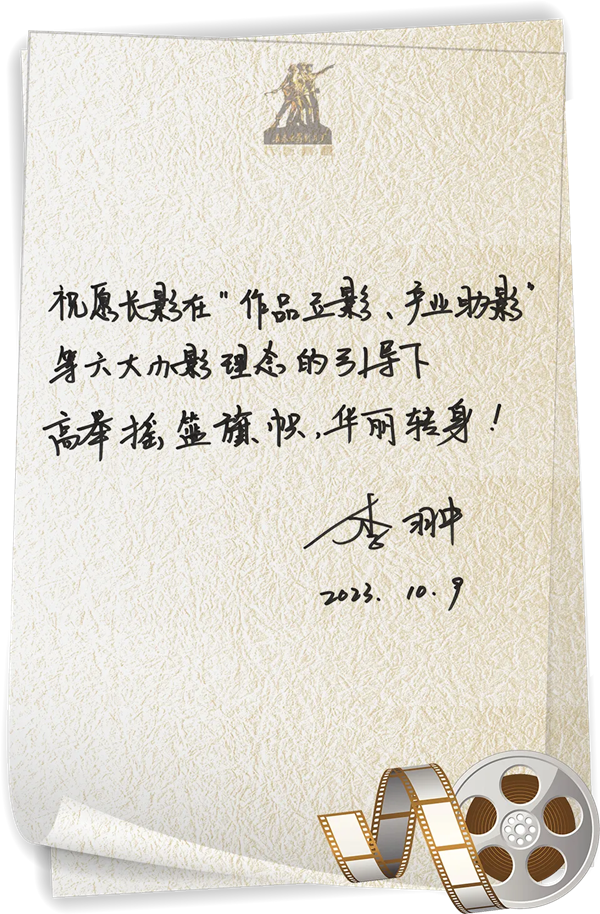 长春电影制片厂
祝愿长影在“作品立影、产业助影”
等六大办影理念的引导下
高举摇篮旗帜，华丽转身！
李翀
2023.10.9